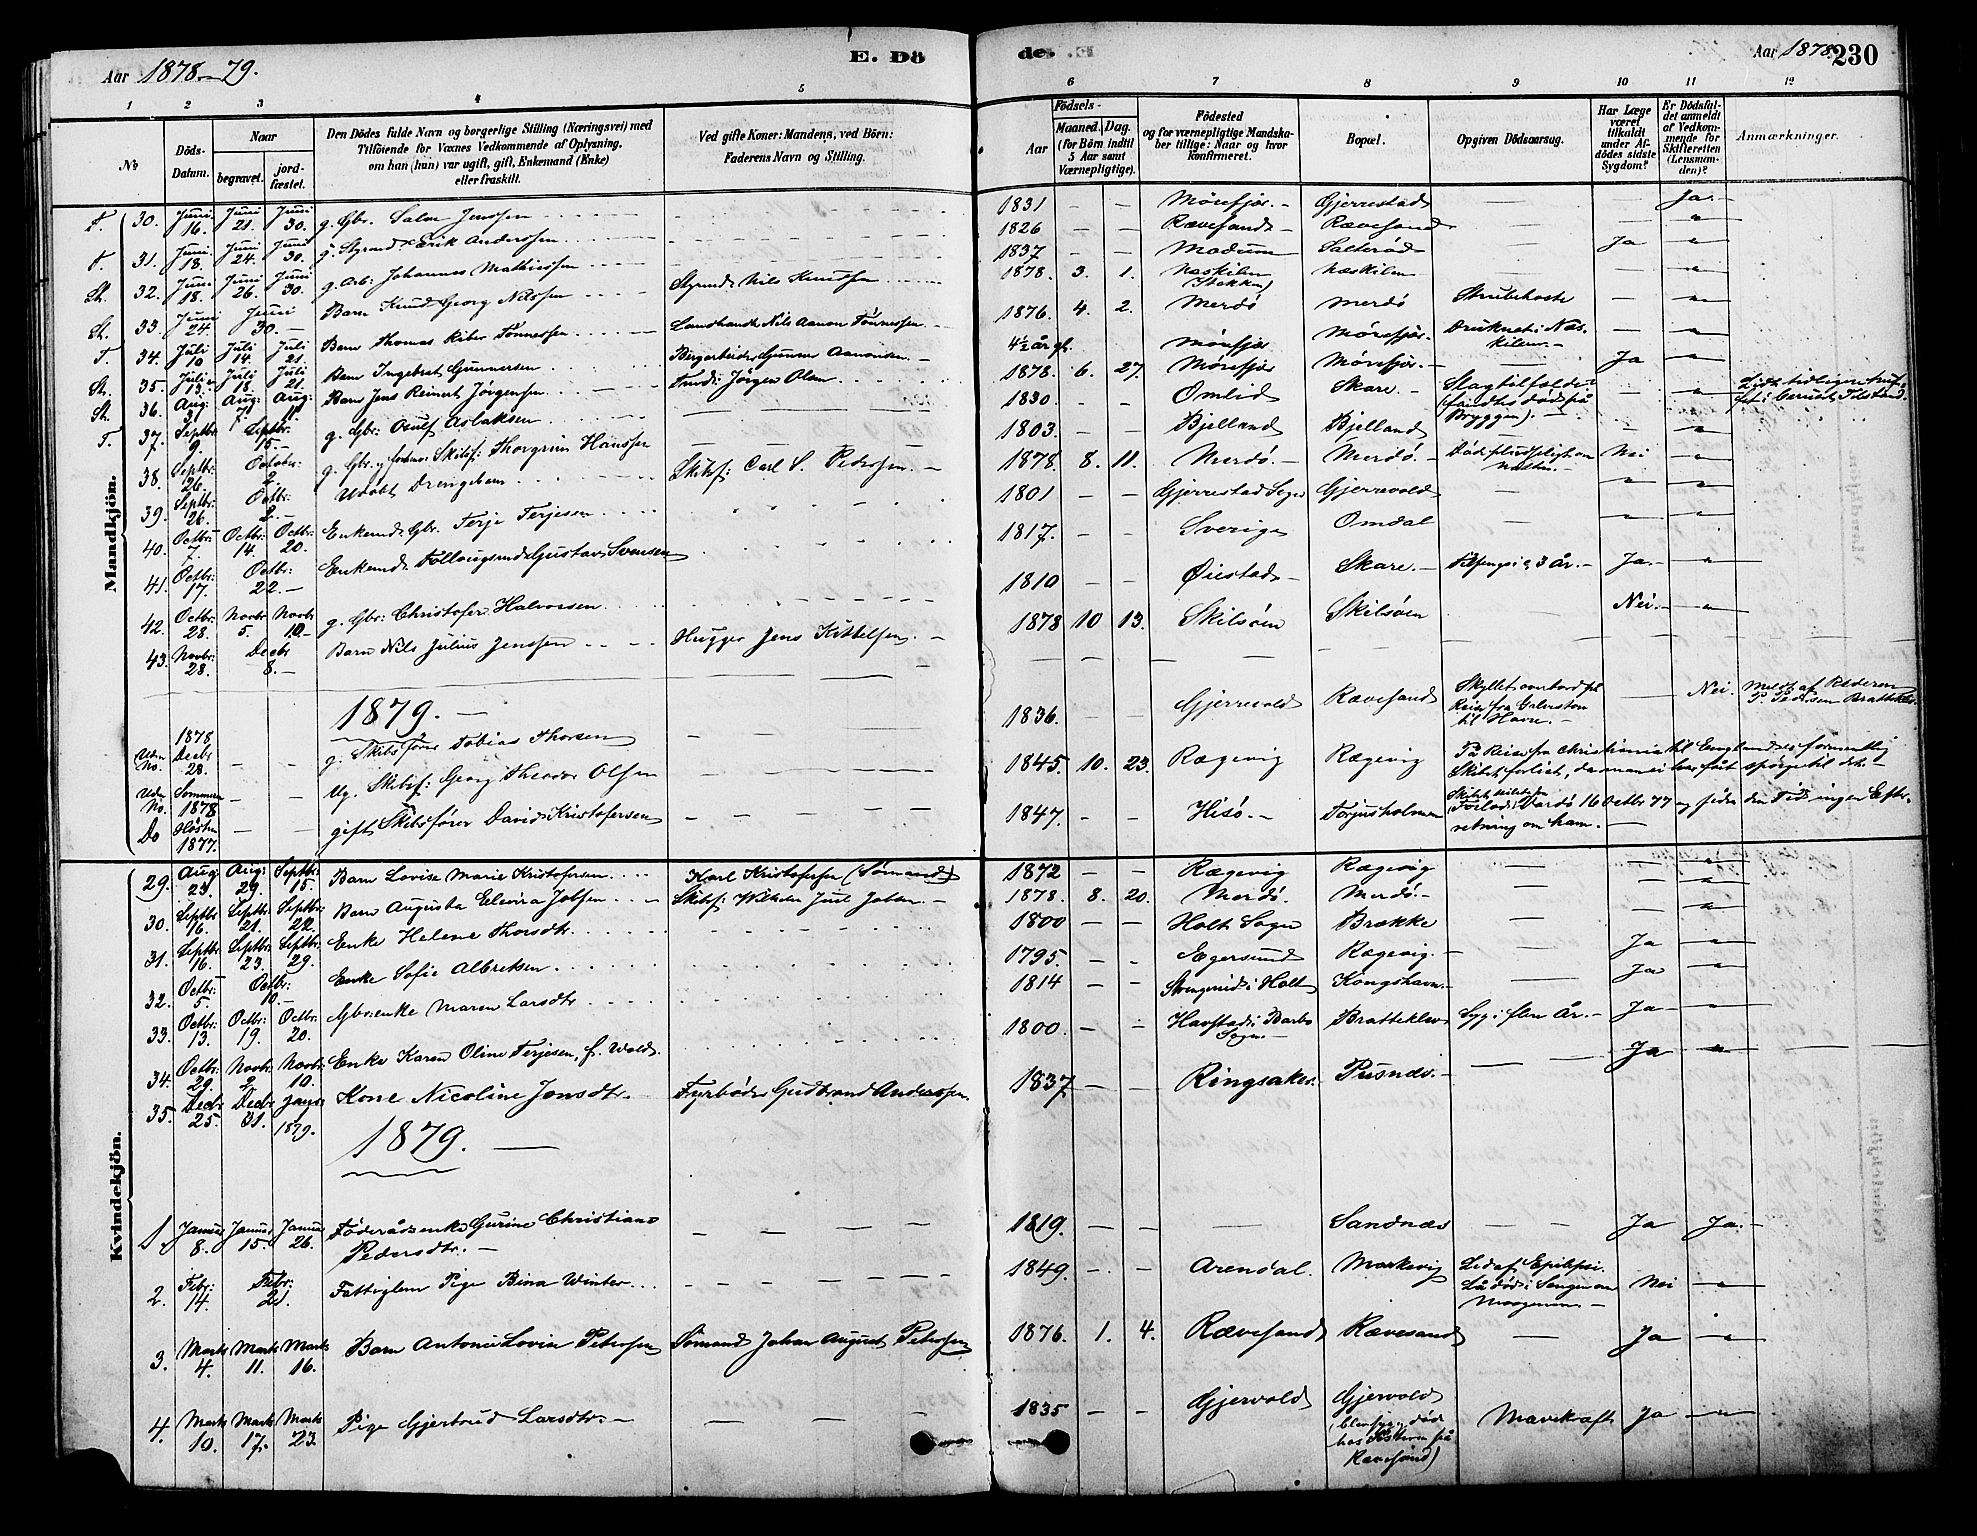 Aar 1878-79.
E. Dö
de.
Aar 1878.
230
1 2 3 4 5 6 7 8 9 10 11 12
No
Döds-Datum.
Naar
begravet.
jord-fæstet.
Den Dödes fulde Navn og borgerlige Stilling (Næringsvei) med
Tilföiende for Voxnes Vedkommende af Oplysning,
om han (hun) var ugift, gift, Enkemand (Enke)
eller fraskilt.
Ved gifte Koner: Mandens, ved Börn:
Faderens Navn og Stilling.
Födsels-
Aar
Maaned. Dag.
(for Börn indtil
3 Aar samt
Værnepligtige).
Födested
og for værnepligtige Mandska-
ber tillige: Naar og hvor
konfirmeret.
Bopæl.
Opgiven Dödsaarsag.
Har Læge
været
tilkaldt
under Af-
dödes sidste
Sygdom?
Er Dödsfal-
det anmeldt
af Vedkom-
mende for
Skifteretten
(Lensman-
den)?
Anmærkninger.
Mandkjön.
30. Juni 16. Juni 21. Juni 30. g. Gbr. Salve Jenssen 1831 — — Mörefjær. — Gjerrestad — Ja. —
31. Juni 18. Juni 24. Juni 30. g. Styrmd. Erik Anderssen 1826 — — Rævesand — Rævesand — — "
32. Juni 18. Juni 26. Juni 30. g. Arb: Johannes Mathiessen 1837 — — Modum Salteröd — Ja "
33. Juni 24. Juni 30. — Barn Knud Georg Nilssen Styrmd. Nils Knudsen 1878. 3. 1. Næskilen Næskilen — — "
34. Juli 10. Juli 14. Juli 21. Barn Thomas Kiber Tönnessen Landhandl. Nils Aanon Tönnessen — 1876. 4. 2. Merdö Merdö Strubehoste — "
35. Juli 13. Juli 18. Juli 21. Barn Ingebret Gunnersen Bergarbeider Gunner Aanonsen — 4½ år gl. Mörefjær Mörefjær. — Druknet i Næskilen. — — "
36. Aug: 3. Aug: 7. Aug: 11. Barn Jens Reinert Jörgensen Jörgen Olsen 1878. 6. 27. Mörefjær Mörefjær. — — Ja "
37. Septbr. 9. Septbr: 15. — g. Gbr: Osulf Aslaksen 1830. — — Omlid Skare. — Slagtilfælde (fandtes död på Bryggen). — — "
38. Septbr: 26. October 2. g. Gbr. og forhv. Skibsf: Thorgrim Hanssen 1803. — — Bjelland Bjelland — — "
39. Septbr: 26. Octbr: 2. — Udöbt Drengebarn Skibsf: Carl S. Pedersen. — 1878. 8. 11. Merdö. — Merdö. — Död pludseligt om natten. — Nei "
40. Octbr: 7. Octbr. 14. Octbr: 20. Enkemd. Gbr. Terje Terjesen 1801 — — Gjerrestad Sogn Gjerrevold — " "
41. Octbr: 17. Octbr: 22. — Enkemd. Gustav Svensen 1817. — — Sverige Omdal — " "
42. Octbr: 28. Novbr: 5. Novbr: 10. — g. Gbr: Christofer Halvorsen 1810 — — Öiestad — Skare. — Tilsengs i 2, 3 år. — Ja. — "
43. Novbr: 28. Decbr 8. — Barn Nils Julius Jenssen Hugger Jens Kittelsen. — 1878 10 13. Skilsöen Skilsöen — Nei. — "
1879. —
Uden No. 1878 Decbr 28. — — g. Skibsförer Tobias Thorsen — — — 1836. — — Gjerrevold Rævesand Skyllet overbord på Reise fra Galveston til Havre. — — Nei. Meldt af Rederen P. Pedersen Bratteklev.
Uden No. Sommeren 1878 — — Ug. Skibsf: Georg Theodor Olsen — — — 1845. 10. 23. Rægevig Rægevig På Reise fra Christiania til England er formentlig Skibet forlist, da man ei har fåt spörge til det. —
Do Hösten 1877. — — gift Skibsförer David Kristofersen — — — 1847. — — Hisö. — Torjusholmen Forlod Vardö 16 Octbr 77 og siden den Tid ingen Efterretning om ham. —
Kvindekjön.
29. Aug 23. Aug: 29. Septbr: 15. Barn Lovise Marie Kristofersen Karl Kristofersen (Sömand) 1872 — — Rægevig Rægevig — — "
30. Septbr: 16. Septbr: 21. Septbr 22. Barn Augusta Elvira Jolsen Skibsf: Wilhelm Juel — 1878. 8. 20. Merdö. Merdö. — — — "
31. Septbr: 16. Septbr: 23. Septbr: 29. Enke Helene Thorsdtr. 1800 — — Holt Sogn Brække — — "
32. Octbr: 5. Octbr: 10. — Enke Sofie Albretsen 1795. — — Egersund Rægevig. — — Ja "
33. Octbr: 13. Octbr: 19. Octbr: 20. Gbr:enke Maren Larsdtr. 1814 — — i Holt Kongshavn. — — Ja "
34. Octbr: 29. Novbr: 2. Novbr: 10. Enke Karen Oline Terjesen, f. Wold. 1800. — — Havstad i Barbo Sogn. — Bratteklev Syg i flere År. — Ja — "
35. Decbr 25. Decbr 31. Janr 1879. Kone Nicoline Jonsdtr. — Fyrböder Gudbrand Anderssen 1837 — — Ringsaker. Pusnæs. — — Ja "
1879. —
1. Januar 8. Januar 15. Januar 26. Föderådsenke Gurine Christiane Pedersdtr. — — — — 1819. — — — Sandnæs — — Ja Ja. —
2. Febr: 14. Febr: 21. Fattiglem Pige Bina Winter 1849. — — Arendal. Markevig Led af Epilepsi. Lå död i Sengen om Morgenen. — Nei "
3. Marts 4. Marts 11. Marts 16. Barn Antonie Lovise Petersen Sömand Johan August Petersen 1876. 1. 4. Rævesand Rævesand — Ja "
4. Marts 10. Marts 17. Marts 23. Pige Gjertrud Larsdtr. — — — — 1835 — — Gjervold Gjervold (blev syg og död hos Söstern på Rævesand) Mavekræft Ja "